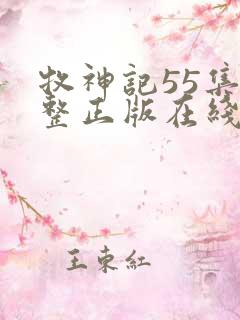 牧神記55集
整正版在綫
王東紅